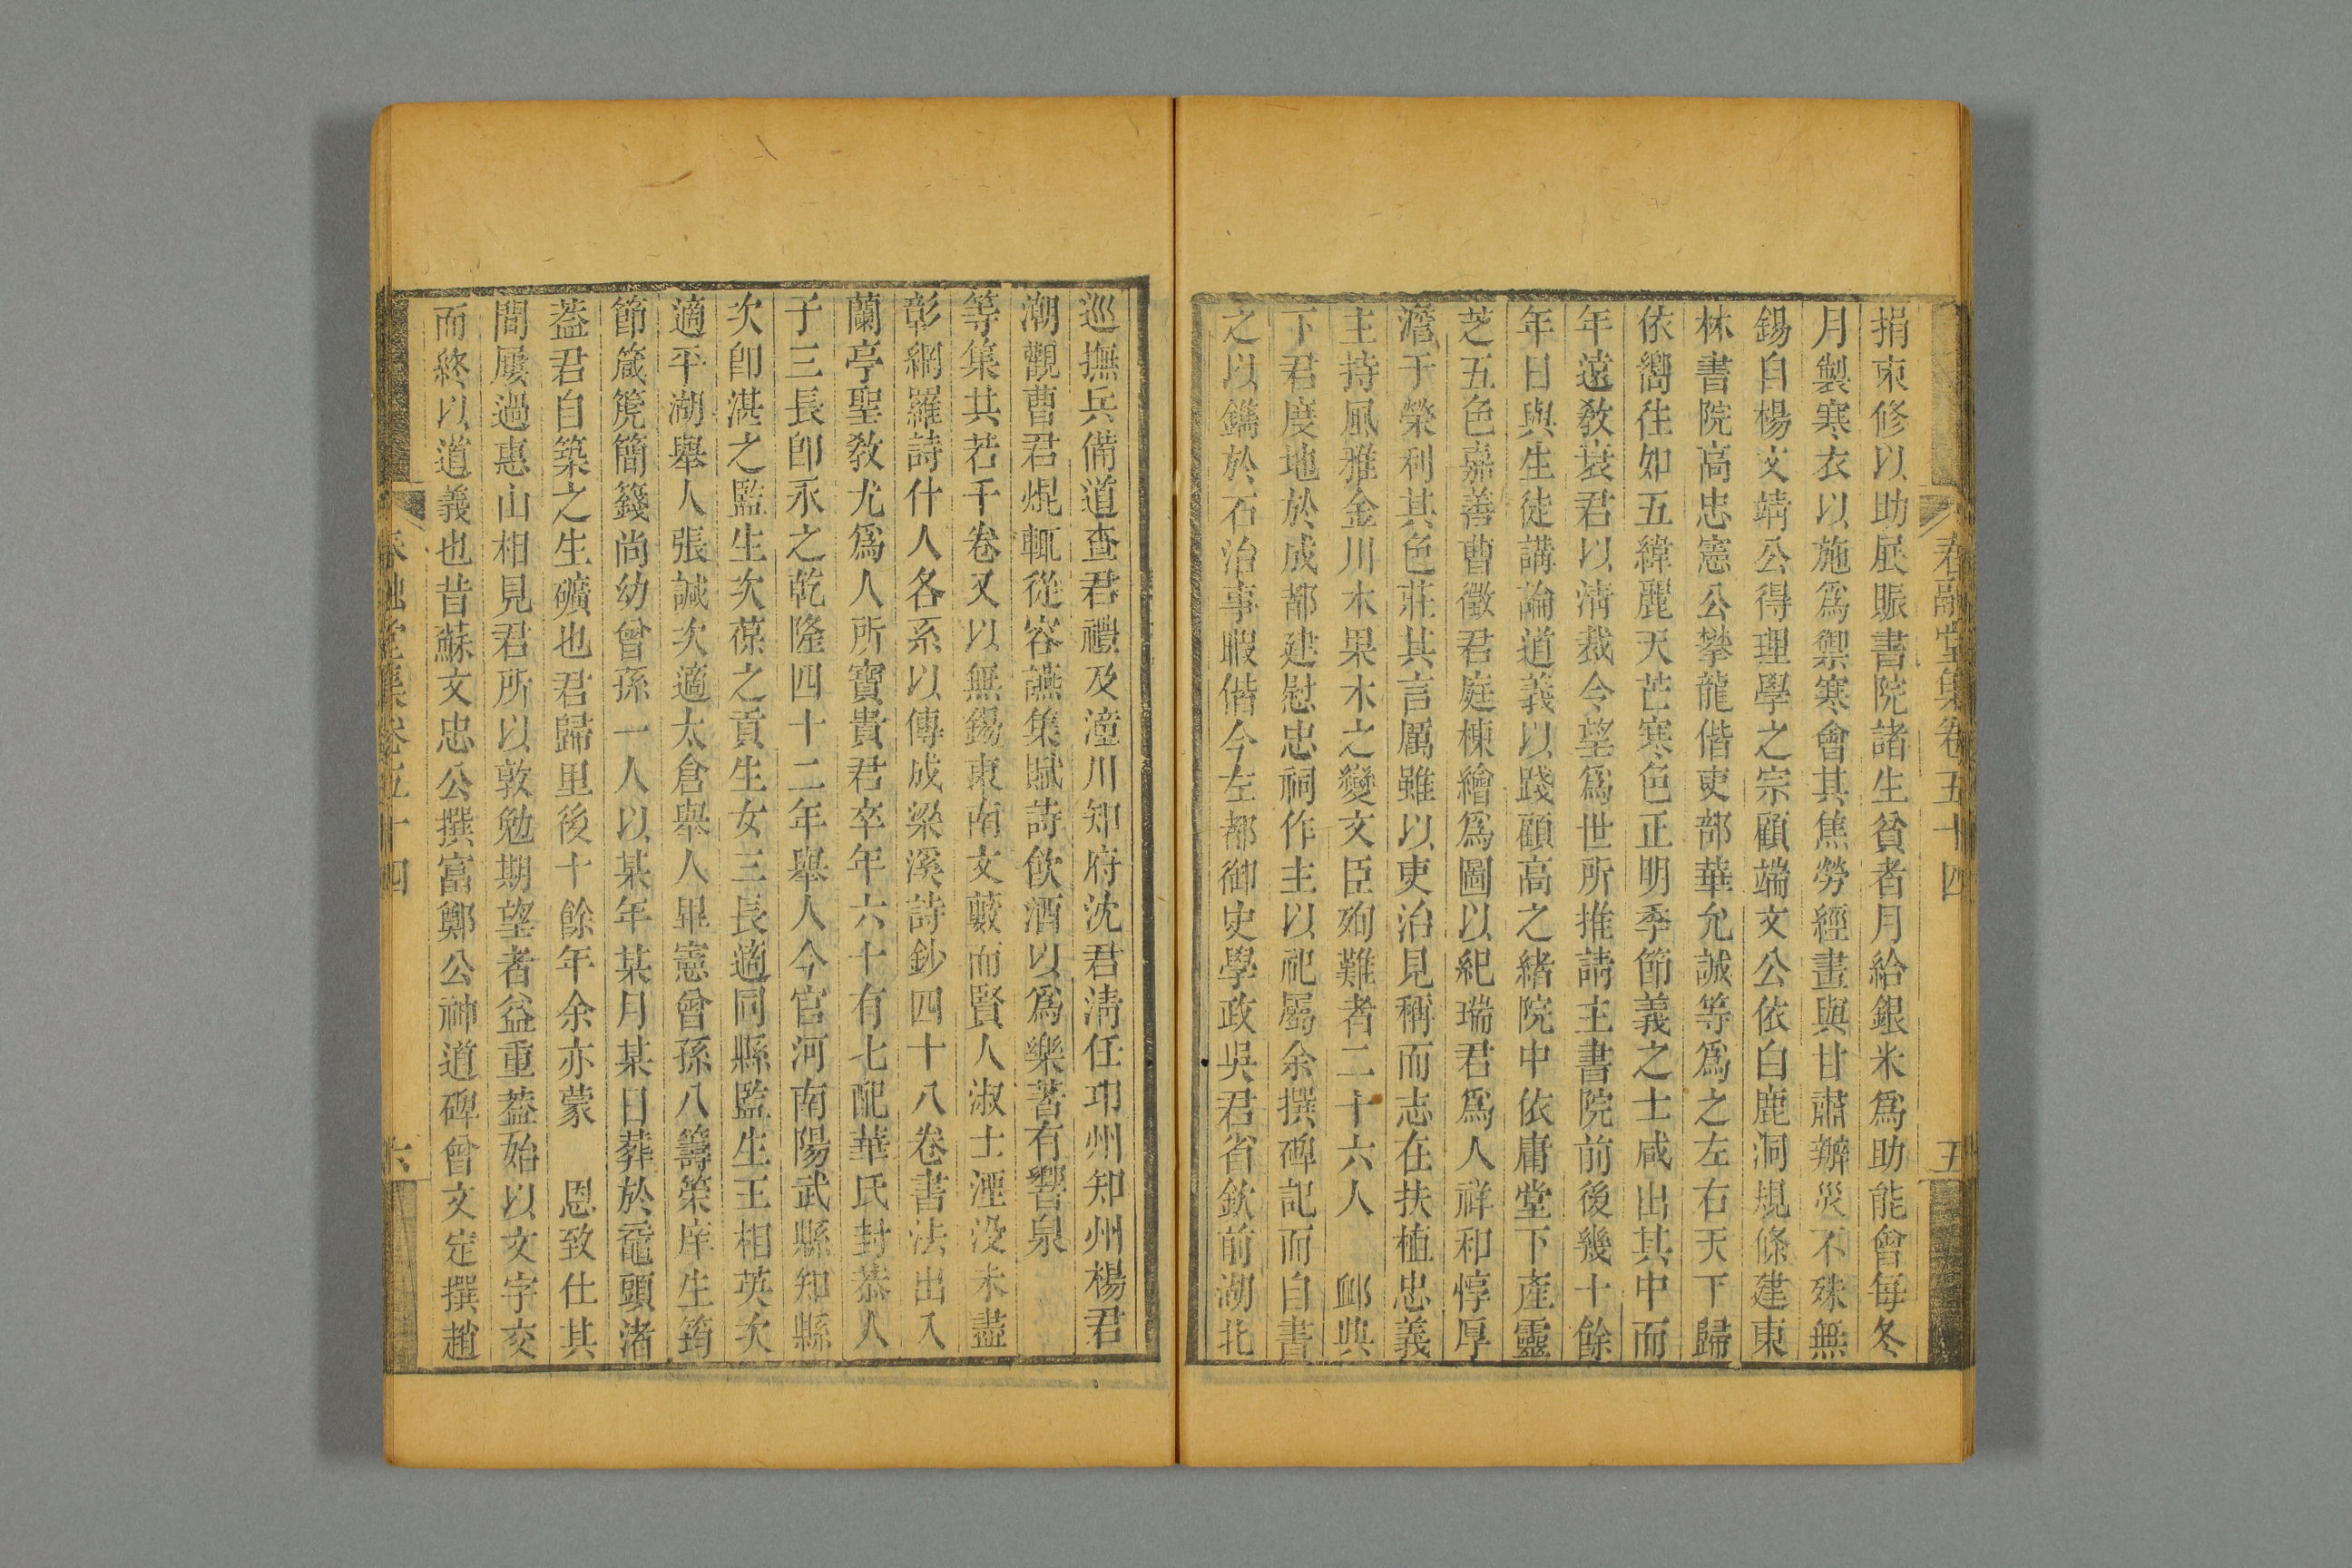 春融堂集卷五十四 五
捐束修以助展賑書院諸生貧者月給銀米爲助能曾每冬
月製寒衣以施爲禦寒會其焦勞經畫與甘肅辦災不殊無
錫自楊文靖公得理學之宗顧端文公依白鹿洞規條建東
林書院高忠憲公攀龍偕吏部華允誠等爲之左右天下歸
依嚮往如五緯麗天芒寒色正明季節義之士咸出其中而
年遠敎衰君以淸裁令望爲世所推請主書院前後幾十餘
年日與生徒講論道義以踐顧高之緖院中依庸堂下產靈
芝五色嘉善曹徵君庭棟繪爲圖以紀瑞君爲人祥和惇厚
澹于榮利其色莊其言厲雖以吏治見稱而志在扶植忠義
主持風雅金川木果木之變文臣殉難者二十六人 卹典
下君度地於成都建慰忠祠作主以祀屬余撰碑記而自書
之以鐫於石治事暇偕今左都御史學政吳君省欽前湖北
巡撫兵備道查君禮及潼川知府沈君淸任邛州知州楊君
潮觀曹君焜輒從容讌集賦詩飮酒以爲樂著有響泉
等集共若干卷又以無錫東南文藪而賢人淑士湮没未盡
彰網羅詩什人各系以傳成梁溪詩鈔四十八卷書法出入
蘭亭聖敎尤爲人所寶貴君卒年六十有七配華氏封恭人
子三長卽永之乾隆四十二年舉人今官河南陽武縣知縣
次卽湛之監生次葆之貢生女三長適同縣監生王相英次
適平湖舉人張誠次適太倉舉人畢憲曾孫八籌榮庠生筠
節箴箢簡籛尚幼曾孫一人以某年某月某日葬於黿頭渚
葢君自築之生礦也君歸里後十餘年余亦蒙 恩致仕其
間屢過惠山相見君所以敦勉期望者益重葢始以文字交
而終以道義也昔蘇文忠公撰富鄭公神道碑曾文定撰趙
春融堂集卷五十四 六